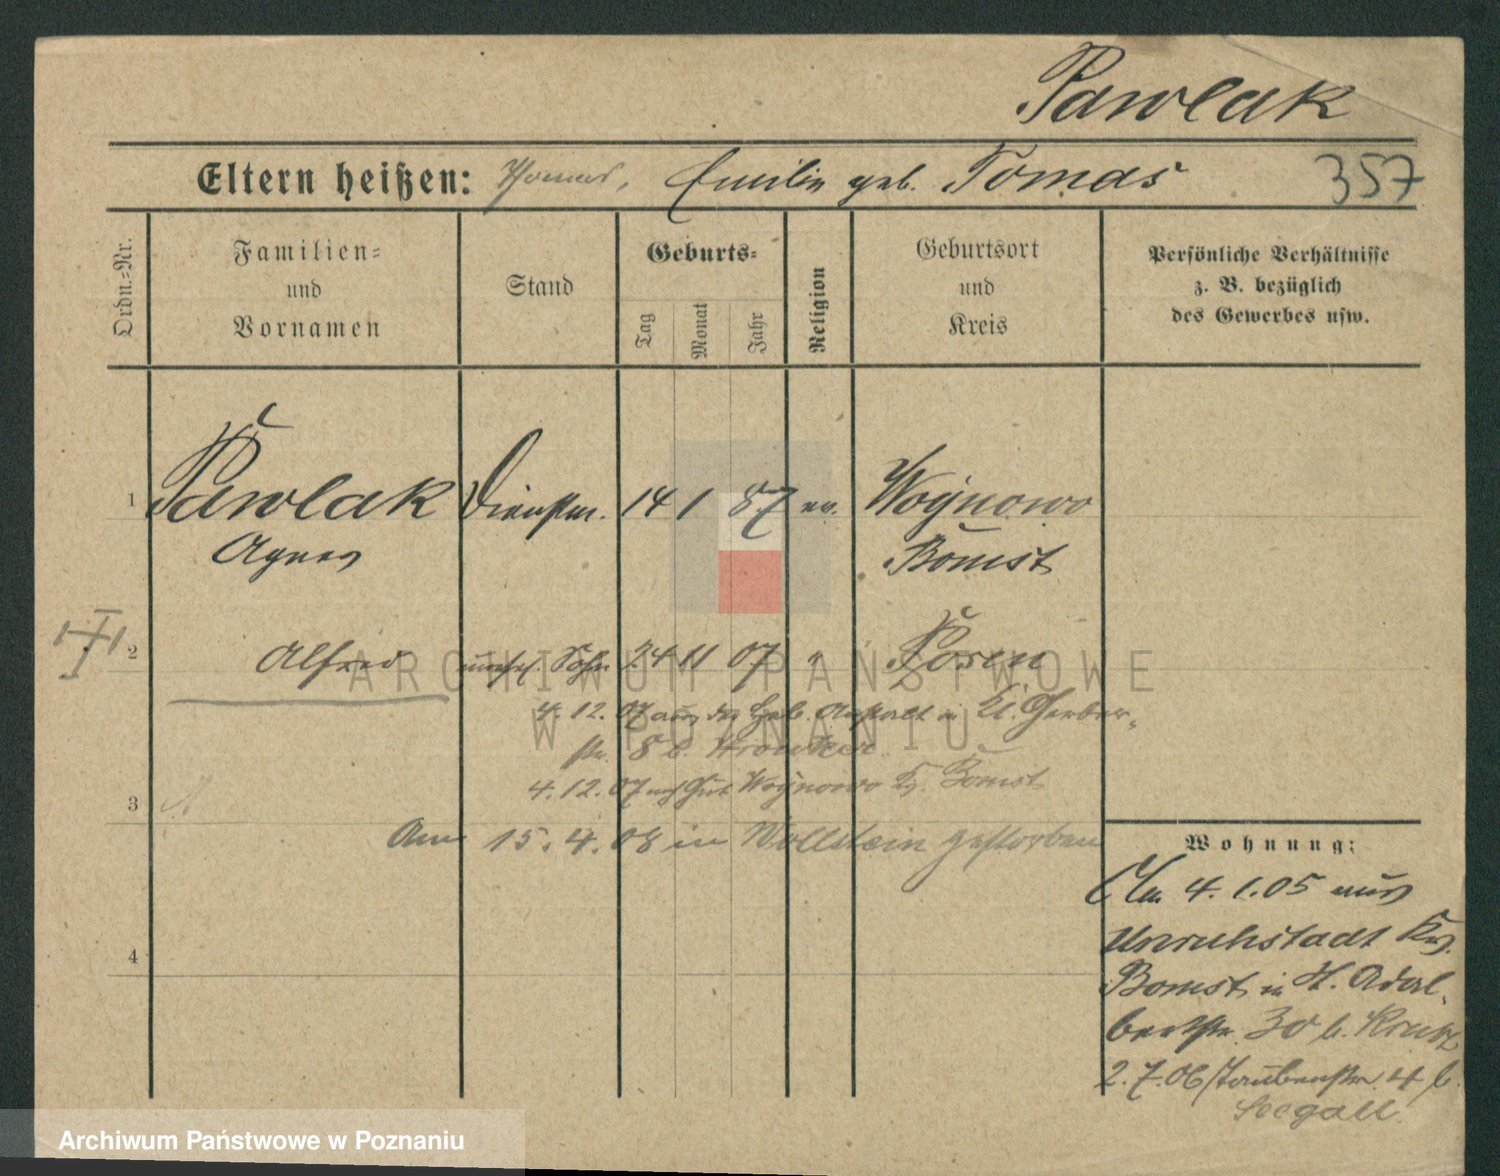 Pawlak
Eltern heißen: Thomas, Emilie geb. Tomas 357
Ordn.-Nr.
Familien-
und
Vornamen
Stand
Geburts-
Tag
Monat
Jahr
Religion
Geburtsort
und
Kreis
Persönliche Verhältnisse
z. B. bezüglich
des Gewerbes usw.
1 Pawlak Dienstm. 14 1 87 ev. Wojnowo
Agnes Bomst
2 Alfred unehel. Sohn 24 11 07 " Posen
4. 12. 07 aus der Geb. Anstalt in Kl. Gerber-
str. 8 b.
4. 12. 07 nach Gut Wojnowo Kr. Bomst
3
Am 15. 4. 08 in Wollstein gestorben
4
Wohnung:
Am 4. 1. 05 aus
Unruhstadt Kr.
Bomst in St. Adal-
bertstr. 30 b.
2. 7. 06 Taubenstr. 4 b.
Seegall.
ARCHIWUM PAŃSTWOWE
W POZNANIU
Archiwum Państwowe w Poznaniu